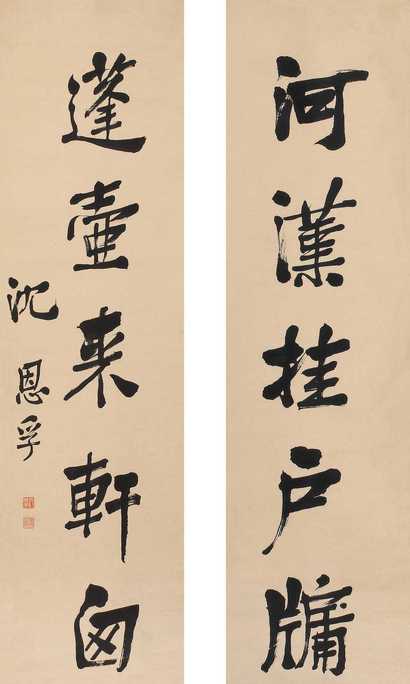 河漢挂戶牖
蓬壺來軒囪
沈恩孚